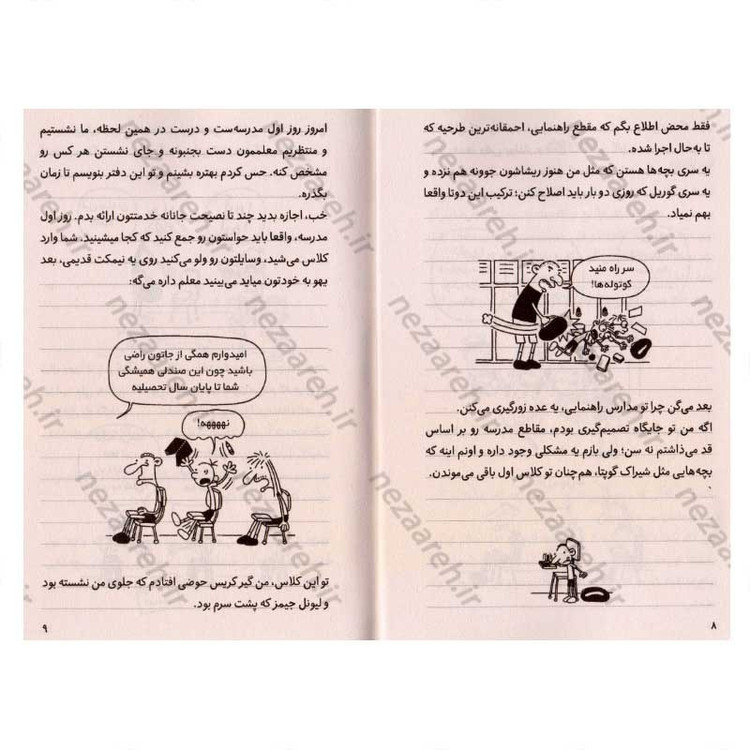 فقط محض اطلاع بگم که مقطع راهنمایی، احمقانه‌ترین طرحیه که
تا به‌حال اجرا شده.
یه سری بچه‌ها هستن که مثل من هنوز ریشاشون جوونه هم نزده و
یه سری گوریل که روزی دو بار باید اصلاح کنن؛ ترکیب این دوتا واقعا
بهم نمیاد.
سر راه منید
کوتوله‌ها!
بعد می‌گن چرا تو مدارس راهنمایی، یه عده زورگیری می‌کنن.
اگه من تو جایگاه تصمیم‌گیری بودم، مقاطع مدرسه رو بر اساس
قد می‌ذاشتم نه سن؛ ولی بازم یه مشکلی وجود داره و اونم اینه که
بچه‌هایی مثل شیراک گوپتا، هم‌چنان تو کلاس اول باقی می‌موندن.
۸
امروز روز اول مدرسه‌ست و درست در همین لحظه، ما نشستیم
و منتظریم معلممون دست بجنبونه و جای نشستن هر کس رو
مشخص کنه. حس کردم بهتره بشینم و تو این دفتر بنویسم تا زمان
بگذره.
خب، اجازه بدید چند تا نصیحت جانانه خدمتتون ارائه بدم. روز اول
مدرسه، واقعا باید حواستون رو جمع کنید که کجا میشینید. شما وارد
کلاس می‌شید، وسایلتون رو ولو می‌کنید روی یه نیمکت قدیمی، بعد
یهو به خودتون میاید می‌بینید معلم داره می‌گه:
امیدوارم همگی از جاتون راضی
باشید چون این صندلی همیشگی
شما تا پایان سال تحصیلیه
نههههه!
تو این کلاس، من گیر کریس حوضی افتادم که جلوی من نشسته بود
و لیونل جیمز که پشت سرم بود.
۹
nezaareh.ir
nezaareh.ir
nezaareh.ir
nezaareh.ir
nezaareh.ir
nezaareh.ir
nezaareh.ir
nezaareh.ir
nezaareh.ir